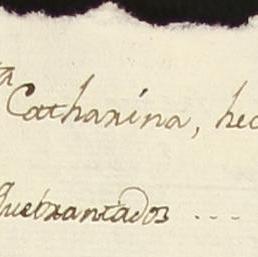 ta Catharina, hec
Quebrantados ....